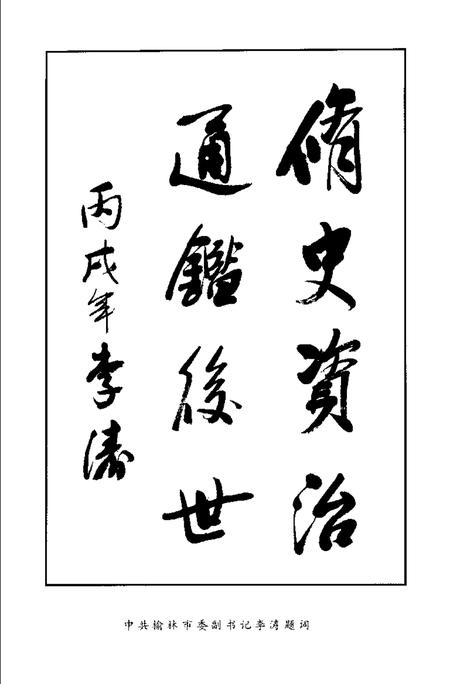 脩史資治
通鑑後世
丙戌年李涛
中共榆林市委副书记李涛题词